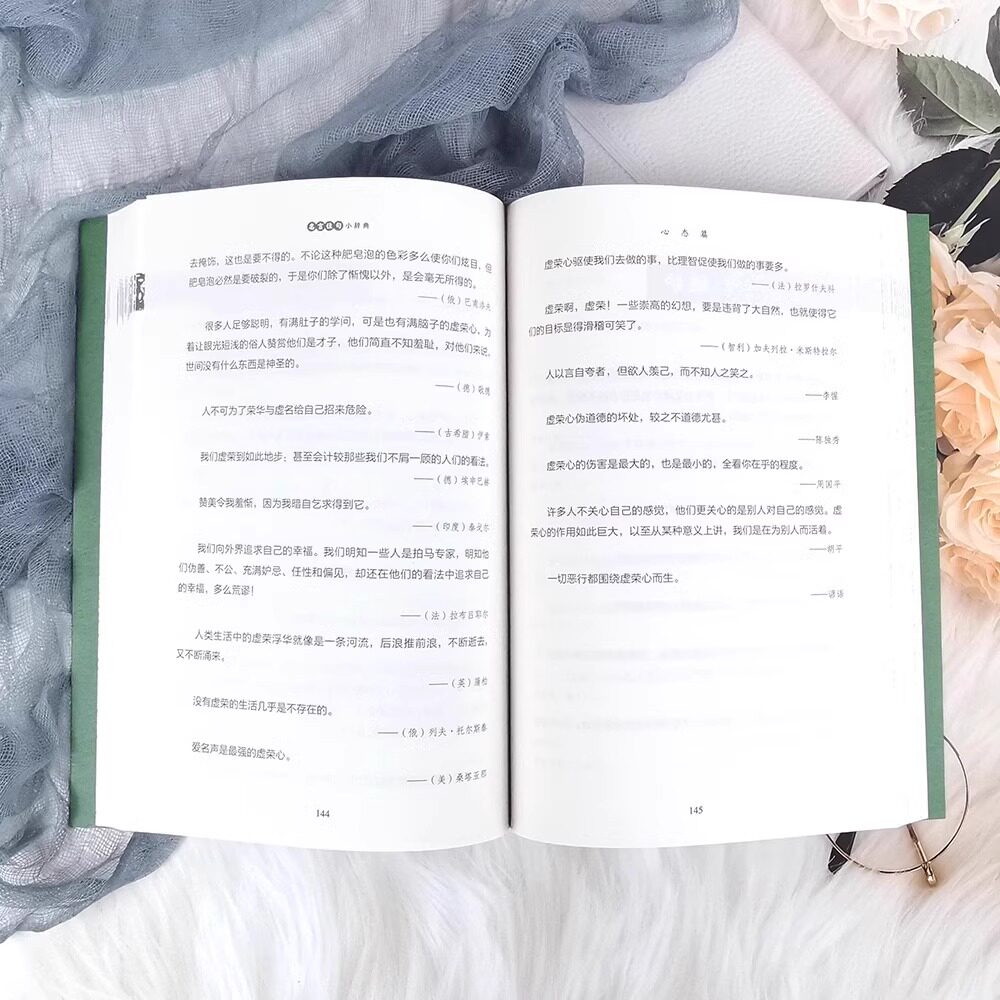 名言佳句小辞典
去掩饰，这也是要不得的。不论这种肥皂泡的色彩多么使你们炫目，但
肥皂泡必然是要破裂的，于是你们除了惭愧以外，是会毫无所得的。
——（俄）巴甫洛夫
很多人足够聪明，有满肚子的学问，可是也有满脑子的虚荣心，为
着让眼光短浅的俗人赞赏他们是才子，他们简直不知羞耻，对他们来说，
世间没有什么东西是神圣的。
——（德）歌德
人不可为了荣华与虚名给自己招来危险。
——（古希腊）伊索
我们虚荣到如此地步：甚至会计较那些我们不屑一顾的人们的看法。
——（德）埃申巴赫
赞美令我羞惭，因为我暗自乞求得到它。
——（印度）泰戈尔
我们向外界追求自己的幸福。我们明知一些人是拍马专家，明知他
们伪善、不公、充满妒忌、任性和偏见，却还在他们的看法中追求自己
的幸福，多么荒谬！
——（法）拉布吕耶尔
人类生活中的虚荣浮华就像是一条河流，后浪推前浪，不断逝去，
又不断涌来。
——（英）蒲柏
没有虚荣的生活几乎是不存在的。
——（俄）列夫·托尔斯泰
爱名声是最强的虚荣心。
——（美）桑塔亚那
144
心态篇
虚荣心驱使我们去做的事，比理智促使我们做的事要多。
——（法）拉罗什夫科
虚荣啊，虚荣！一些崇高的幻想，要是违背了大自然，也就使得它
们的目标显得滑稽可笑了。
——（智利）加夫列拉·米斯特拉尔
人以言自夸者，但欲人羡己，而不知人之笑之。
——李惺
虚荣心伪道德的坏处，较之不道德尤甚。
——陈独秀
虚荣心的伤害是最大的，也是最小的，全看你在乎的程度。
——周国平
许多人不关心自己的感觉，他们更关心的是别人对自己的感觉。虚
荣心的作用如此巨大，以至从某种意义上讲，我们是在为别人而活着。
——胡平
一切恶行都围绕虚荣心而生。
——谚语
145